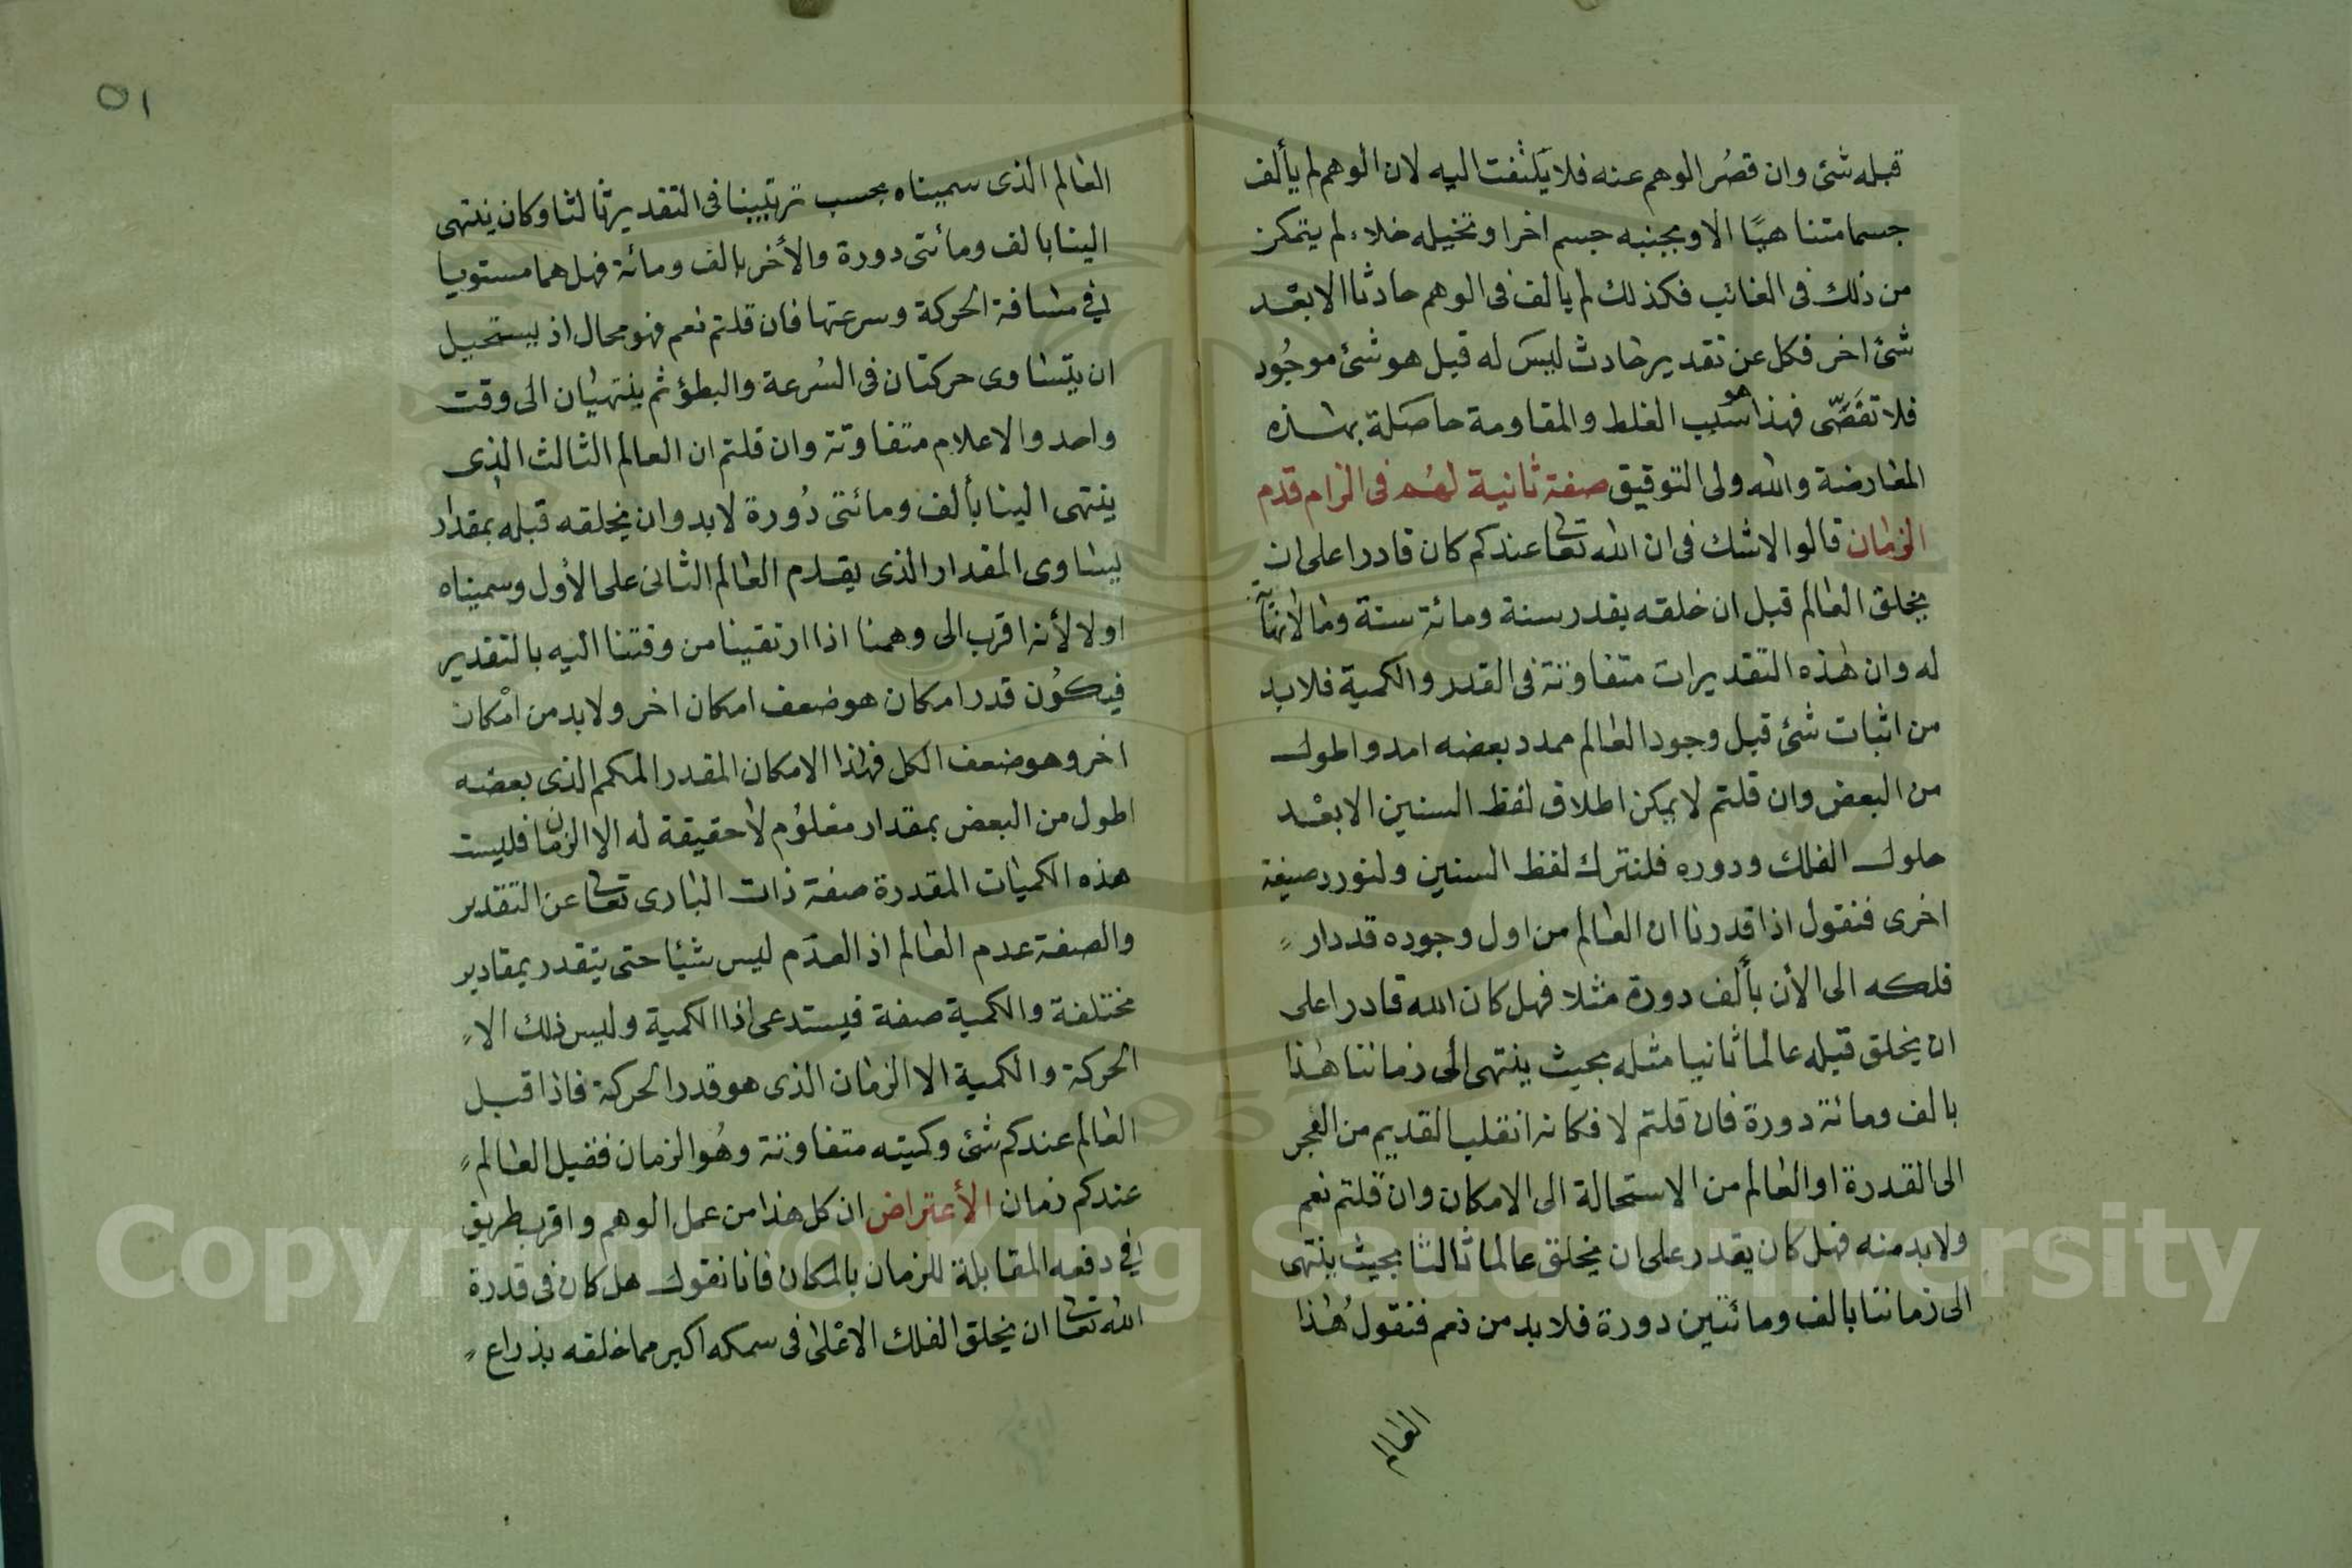 قبله شئ وان قصُر الوهم عنه فلا يَلتفت اليه لان الوهم لم يألف
جسما متناهيًا الا وبجنبه جسم اخر او تخيله خلاء لم يتمكن
من ذلك فى الغائب فكذلك لم يالف فى الوهم حادثا الا بعْد
شئ اخر فكل عن تقدير حادث ليسَ له قبل هو شئ موجُود
فلا تقَصّى فهذا هو سَبب الغلط والمقاومة حاصَلة بهذه
المعارضة والله ولى التوفيق صفة ثانية لهُم فى الزام قدم
الزمان قالوا لاشك فى ان الله تعالى عندكم كان قادرا على ان
يخلق العالم قبل ان خلقه بقدر سنة ومائة سنة وما لا نهاية
له وان هذه التقديرات متفاوتة فى القدر والكمية فلابد
من اثبات شئ قبل وجود العالم ممدد بعضه امد واطول
من البعض وان قلتم لا يمكن اطلاق لفظ السنين الا بعْد
حلول الفلك ودوره فلنترك لفظ السنين ولنورد صيغة
اخرى فنقول اذا قدرنا ان العالم من اول وجوده قد دار
فلكه الى الأن بألف دورة مثلا فهل كان الله قادرا على
ان يخلق قبله عالما ثانيا مثله بحيث ينتهى الى زماننا هذا
بالف ومائة دورة فان قلتم لا فكانه انقلب القديم من العجز
الى القدرة او العالم من الاستحالة الى الامكان وان قلتم نعم
ولابد منه فهل كان يقدر على ان يخلق عالما ثالثا بحيث ينتهى
الى زماننا بالف ومائتين دورة فلابد من نعم فنقولُ هذا
العالم
٥١
العالم الذى سميناه بحسب ترتيبنا فى التقدير ثالثا وكان ينتهى
الينا بالف ومائتى دورة والأخر بالف ومائة فهل هما مستويا
في مسافة الحركة وسرعتها فان قلتم نعم فهو محال اذ يستحيل
ان يتساوى حركتان فى السُرعة والبطؤ ثم ينتهيان الى وقت
واحد والاعلام متفاوتة وان قلتم ان العالم الثالث الذى
ينتهى الينا بألف ومائتى دُورة لابد وان يخلقه قبله بمقدار
يساوى المقدار الذى يقدم العالم الثانى على الأول وسميناه
اولا لأنه اقرب الى وهمنا اذا ارتقينا من وقتنا اليه بالتقدير
فيكوُن قدر امكان هو ضعف امكان اخر ولابد من امْكان
اخر وهو ضعف الكل فهذا الامكان المقدر المكمم الذى بعضه
اطول من البعض بمقدار معلوُم لا حقيقة له الا الزمان فليست
هذه الكميات المقدرة صفة ذات البارى تعالى عن التقدير
والصفة عدم العالم اذ العدَم ليس شيئا حتى يتقدر بمقادير
مختلفة والكمية صفة فيستدعى اذا الكمية وليس ذلك الا
الحركة والكمية الا الزمان الذى هو قدر الحركة فاذا قبل
العالم عندكم شئ وكميته متفاوتة وهُو الزمان فقبل العالم
عندكم زمان الأعتراض ان كل هذا من عمل الوهم واقرب طريق
في دفعه المقابلة للزمان بالمكان فانا نقول هل كان فى قدرة
الله تعالى ان يخلق الفلك الاعْلى فى سمكه اكبر مما خلقه بذراع
Copyright © King Saud University
1957